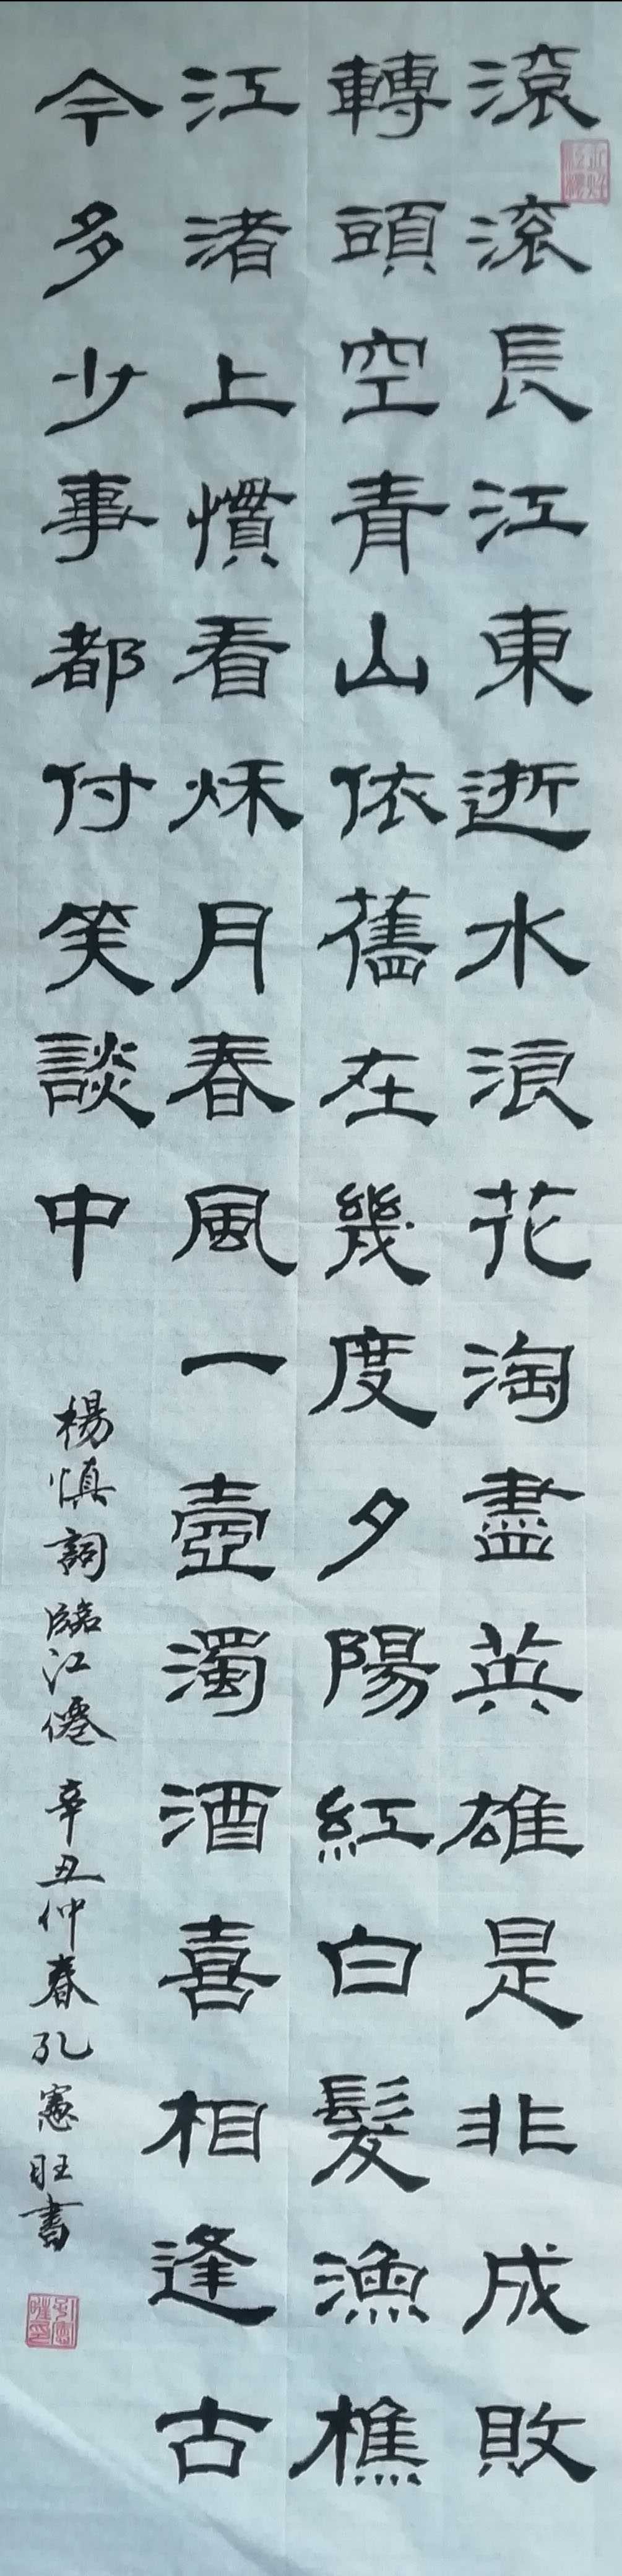 滾滾長江東逝水浪花淘盡英雄是非成敗
轉頭空青山依舊在幾度夕陽紅白髮漁樵
江渚上慣看秌月春風一壺濁酒喜相逢古
今多少事都付笑談中
楊慎詞臨江僊 辛丑仲春孔憲旺書
孔憲旺印